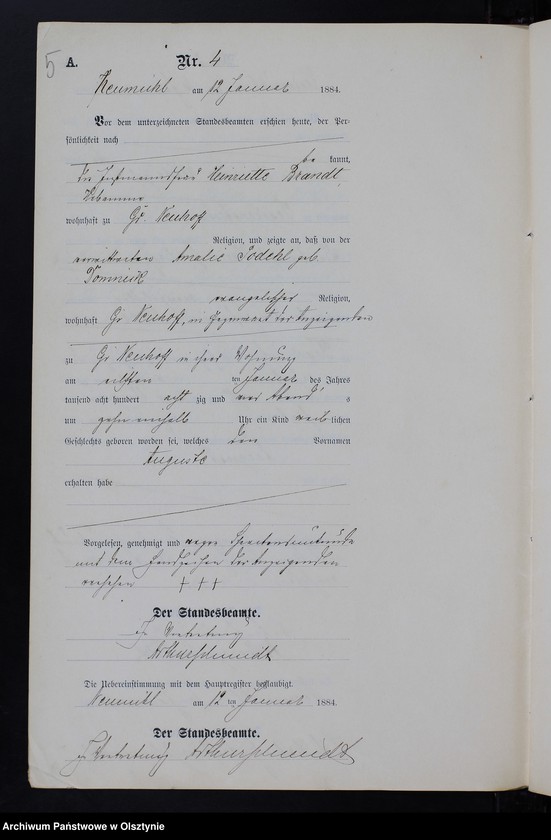 5
A. Nr. 4
Neumühl am 12 Januar 1884.
Vor dem unterzeichneten Standesbeamten erschien heute, der Per-
sönlichkeit nach
be kannt,
die Instmannsfrau Henriette Brandt,
Hebamme
wohnhaft zu Gr. Neuhoff
Religion, und zeigte an, daß von der
verwittweten Amalie geb.
evangelischer Religion,
wohnhaft Gr Neuhoff, in Gegenwart der Anzeigenden
zu Gr Neuhoff in ihrer Wohnung
am elften ten Januar des Jahres
tausend acht hundert acht zig und vier Abend s
um zehn einhalb Uhr ein Kind weib lichen
Geschlechts geboren worden sei, welches den Vornamen
Auguste
erhalten habe
Vorgelesen, genehmigt und wegen Schreibensunkunde
mit dem Handzeichen der Anzeigenden
versehen + + +
Der Standesbeamte.
In Vertretung
Arthur Schmidt
Die Uebereinstimmung mit dem Hauptregister beglaubigt.
Neumühl am 12 ten Januar 1884.
Der Standesbeamte.
In Vertretung Arthur Schmidt
Archiwum Państwowe w Olsztynie